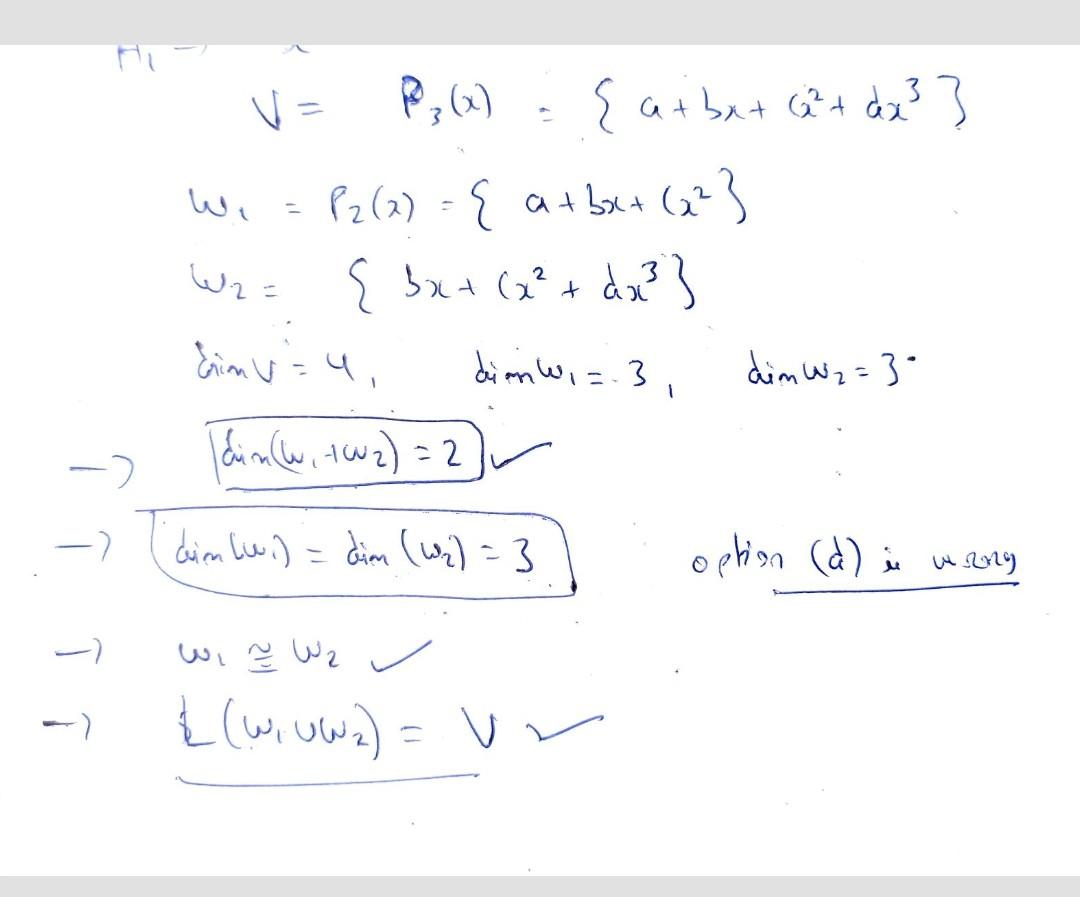 V = P₃(x) = { a + bx + cx² + dx³ }
W₁ = P₂(x) = { a + bx + cx² }
W₂ = { bx + cx² + dx³ }
dim V = 4, dim W₁ = 3, dim W₂ = 3
→ dim(W₁+W₂) = 2 ✓
→ dim(W₁) = dim(W₂) = 3 option (d) is wrong
→ W₁ ≅ W₂ ✓
→ L(W₁∪W₂) = V ✓